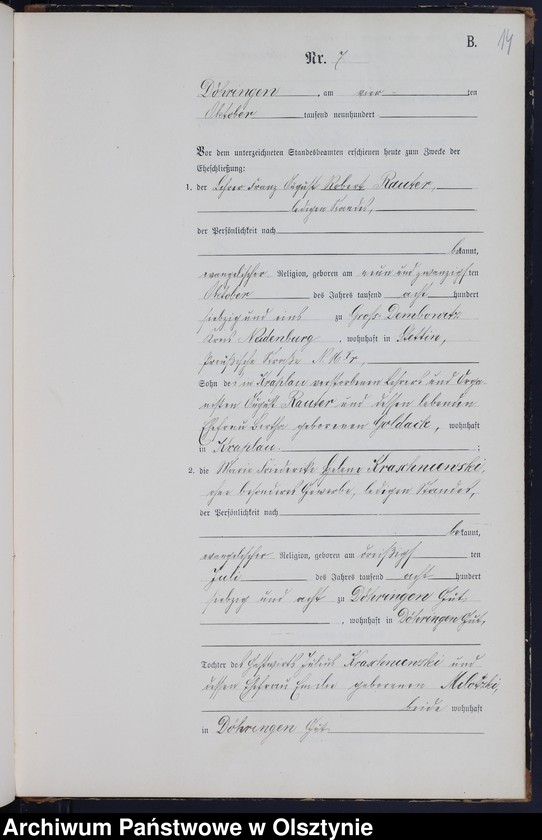 B. 14
Nr. 7
Döhringen, am vier ten
Oktober tausend neunhundert
Vor dem unterzeichneten Standesbeamten erschienen heute zum Zwecke der
Eheschließung:
1. der Lehrer Franz August Robert Rauter,
ledigen Standes,
der Persönlichkeit nach
bekannt,
evangelischer Religion, geboren am neun und zwanzigsten
Oktober des Jahres tausend acht hundert
siebzig und eins zu Groß Dembowitz
Kreis Neidenburg, wohnhaft in Stettin,
Preußische Straße N
Sohn des in Kraplau verstorbenen Lehrers und Orga-
nisten August Rauter und dessen lebenden
Ehefrau Bertha geborenen Goldack, wohnhaft
in Kraplau ;
2. die Marie Friederike Helene Krasteniewski,
ohne besonderes Gewerbe, ledigen Standes,
der Persönlichkeit nach
bekannt,
evangelischer Religion, geboren am dreißigsten
Juli des Jahres tausend acht hundert
siebzig und acht zu Döhringen Gut
, wohnhaft in Döhringen Gut,
Tochter des Gastwirts Julius Krasteniewski und
dessen Ehefrau Emilie geborenen
beide wohnhaft
in Döhringen Gut.
Archiwum Państwowe w Olsztynie